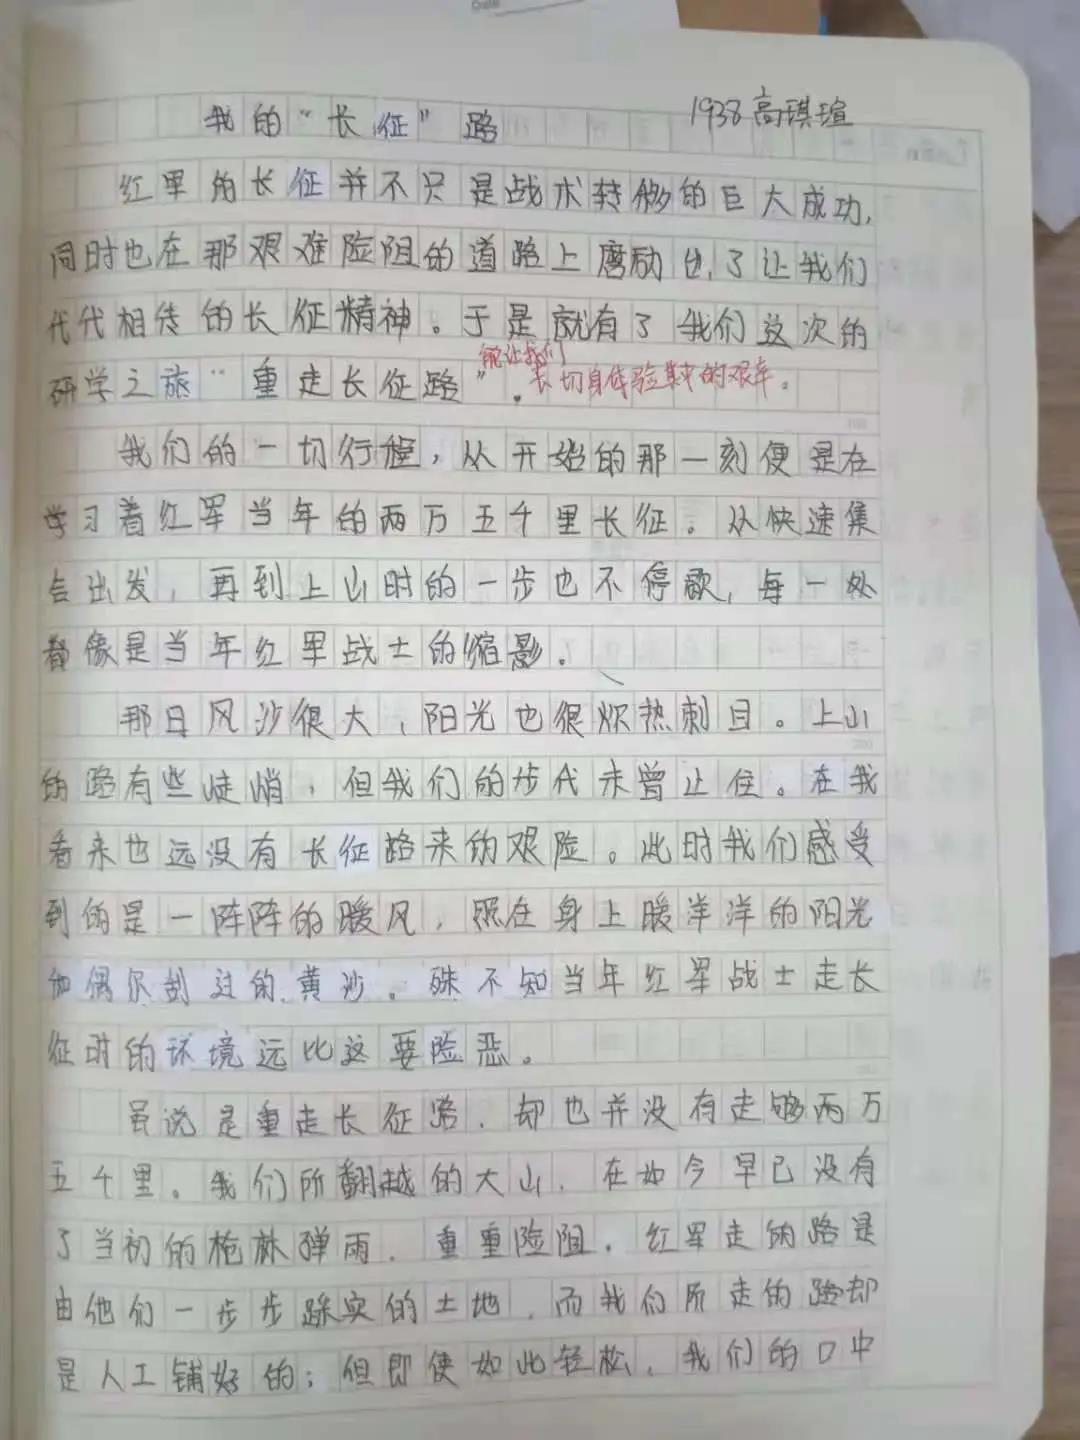 我的“长征”路 1938高琪瑄
红军的长征并不只是战术转移的巨大成功，
同时也在那艰难险阻的道路上磨励出了让我们
代代相传的长征精神。于是就有了我们这次的
能让我们
研学之旅“重走长征路”。去切身体验其中的艰辛。
我们的一切行程，从开始的那一刻便是在
学习着红军当年的两万五千里长征。从快速集
合出发，再到上山时的一步也不停歇，每一处
都像是当年红军战士的缩影。
那日风沙很大，阳光也很炽热刺目。上山
的路有些陡峭，但我们的步代未曾止住。在我
看来也远没有长征路来的艰险。此时我们感受
到的是一阵阵的暖风，照在身上暖洋洋的阳光
和偶尔刮过的黄沙。殊不知当年红军战士走长
征时的环境远比这要险恶。
虽说是重走长征路，却也并没有走够两万
五千里。我们所翻越的大山，在如今早已没有
了当初的枪林弹雨，重重险阻。红军走的路是
由他们一步步踩实的土地，而我们所走的路却
是人工铺好的；但即使如此轻松，我们的口中